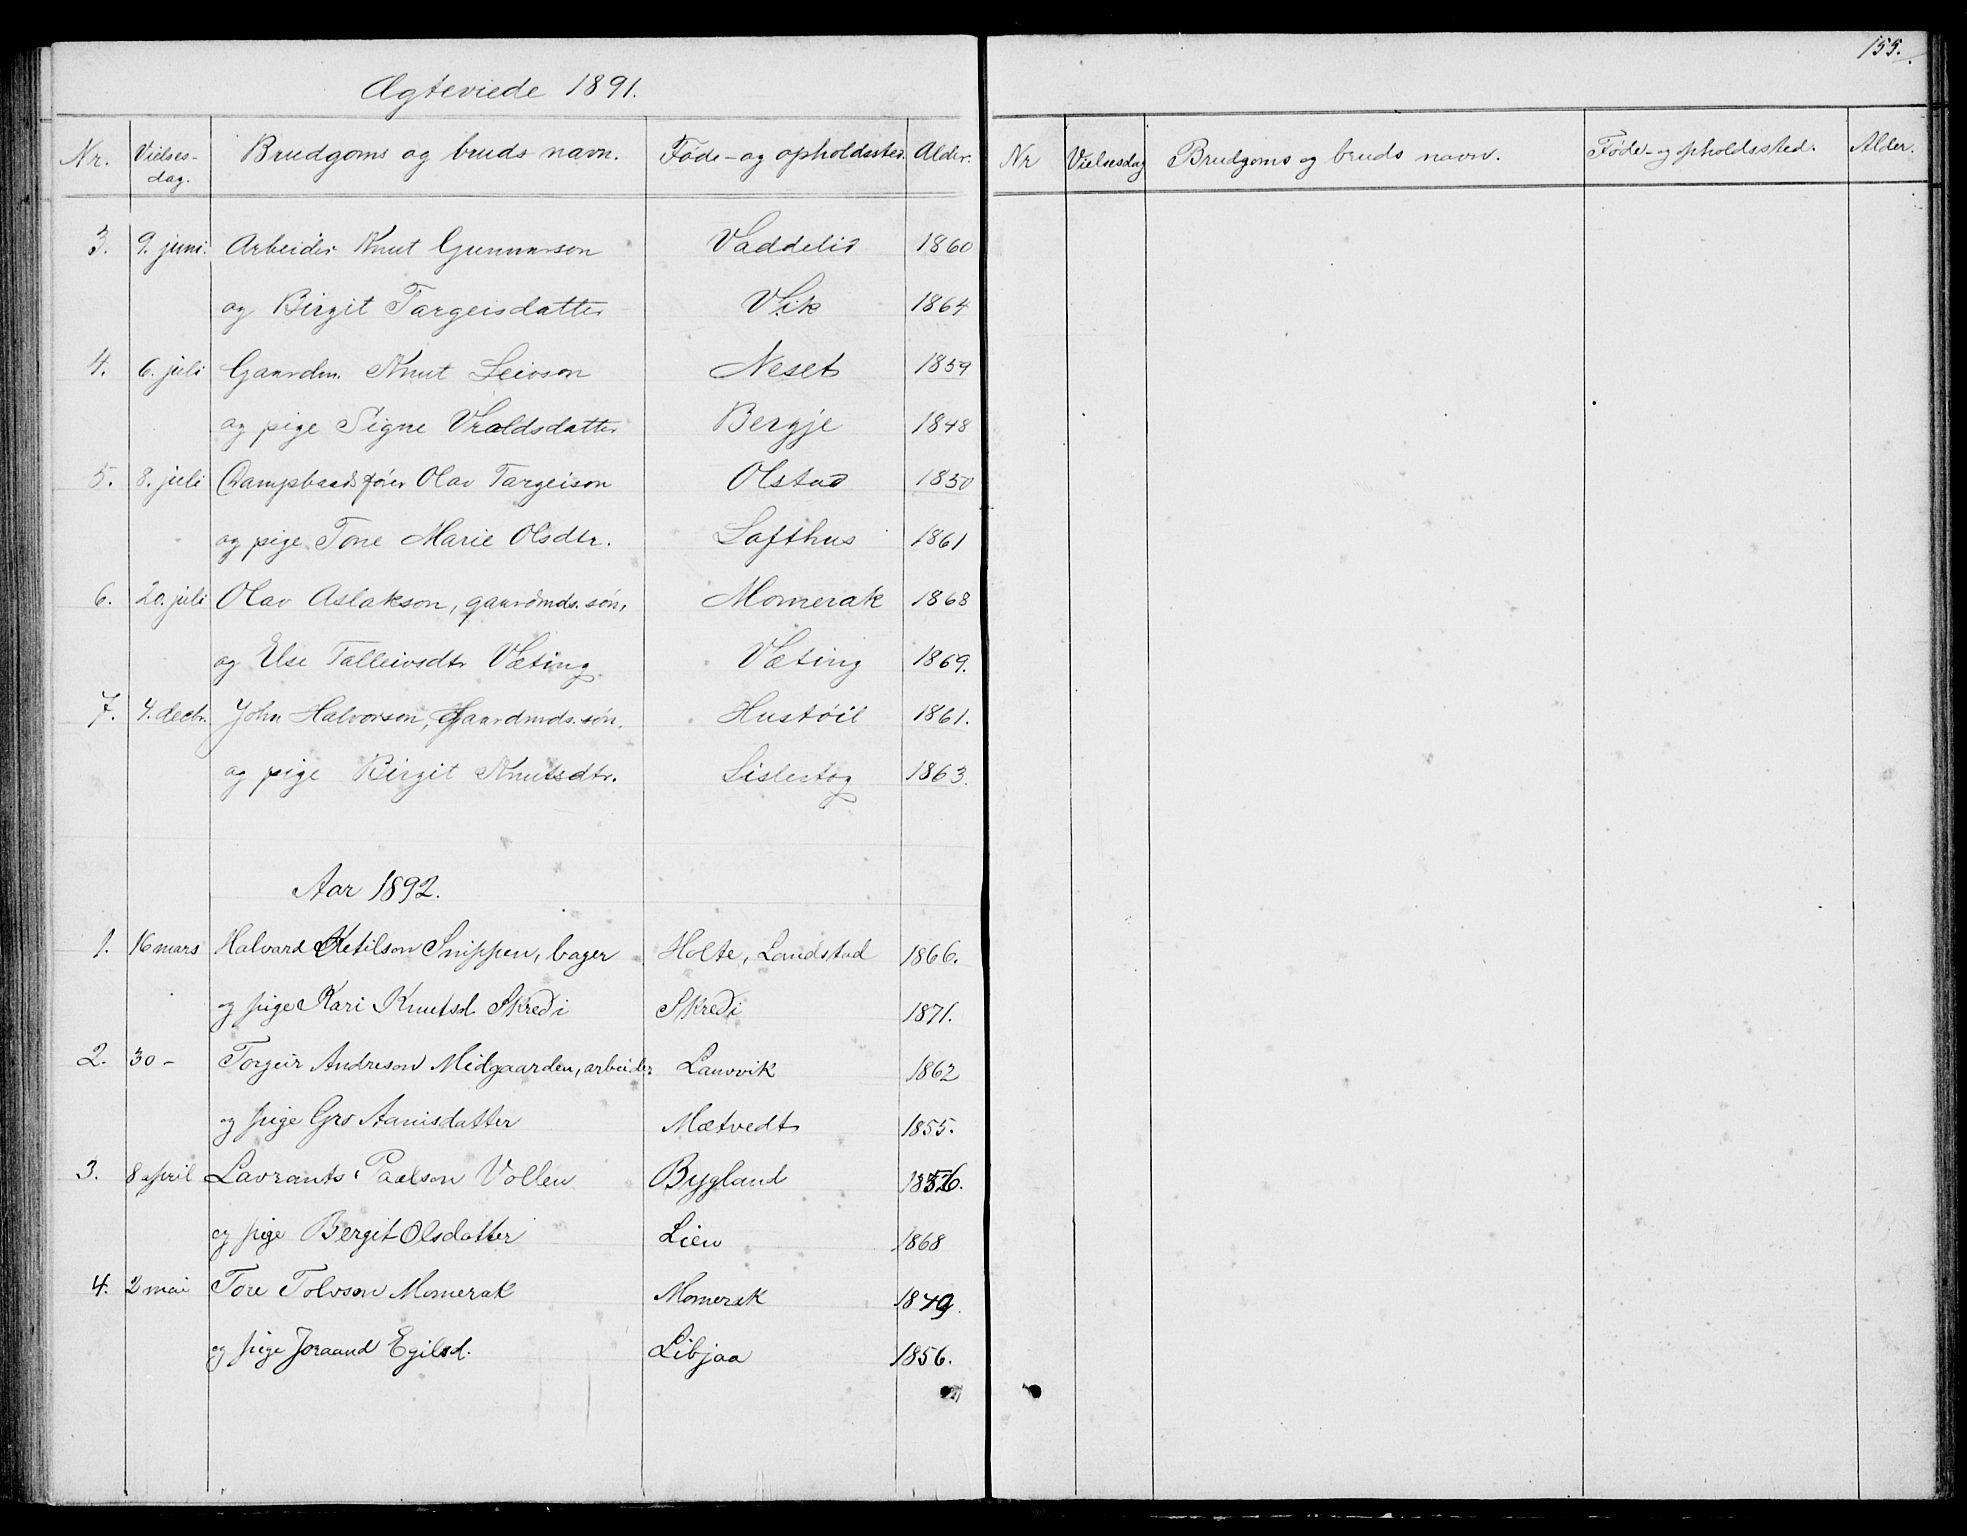 Ægteviede 1891.
Nr. Vielses-dag. Brudgoms og bruds navn. Føde- og opholdssted. Alder.
3. 9. juni. Arbeider Knut Gunnarson Vaddelid 1860
og Birgit Targeisdatter Vik 1864
4. 6. juli Gaardm. Knut Leivson Neset 1859
og pige Signe Vraldsdatter Bergje 1848
5. 8. juli Dampbaadsfører Olav Targeison Olstad 1850
og pige Tone Marie Olsdtr. Lofthus 1861
6. 20. juli Olav Aslakson, gaardmds. søn, Momerak 1868
og Else Talleivsdtr Væting Væting 1869.
7. 4. decbr. John Halvorson, Gaardmds. søn. Hustøil 1861.
og pige Birgit Knutsdtr. Lislestog 1863.
Aar 1892.
1. 16 mars Halvard Ketilson Snippen, bager Holte, Landstad 1866.
og pige Kari Knutsd. Skredi Skredi 1871.
2. 30 – Torgeir Andreson Midgaarden, arbeider Lauvvik 1862
og pige Gro Aanisdatter Mætvedt 1855.
3. 8 april Lavrants Paalson Vollen Bygland 1856.
og pige Bergit Olsdatter Lien 1868
4. 2 mai Tore Tolvson Momerak Momerak 1849.
og pige Joraand Egilsd. Libjaa 1856.
155.
Nr Vielsesdag Brudgoms og bruds navn. Føde- og opholdssted. Alder.